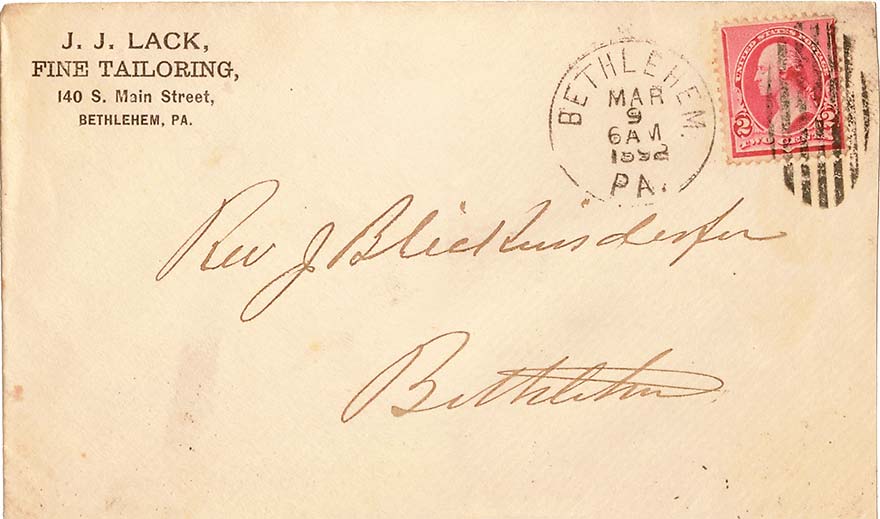 J. J. LACK,
FINE TAILORING,
140 S. Main Street,
BETHLEHEM, PA.
BETHLEHEM.
MAR
9
6 AM
1892
PA.
UNITED STATES POSTAGE
2 2
TWO CENTS
Rev J Blickensderfer
Bethlehem